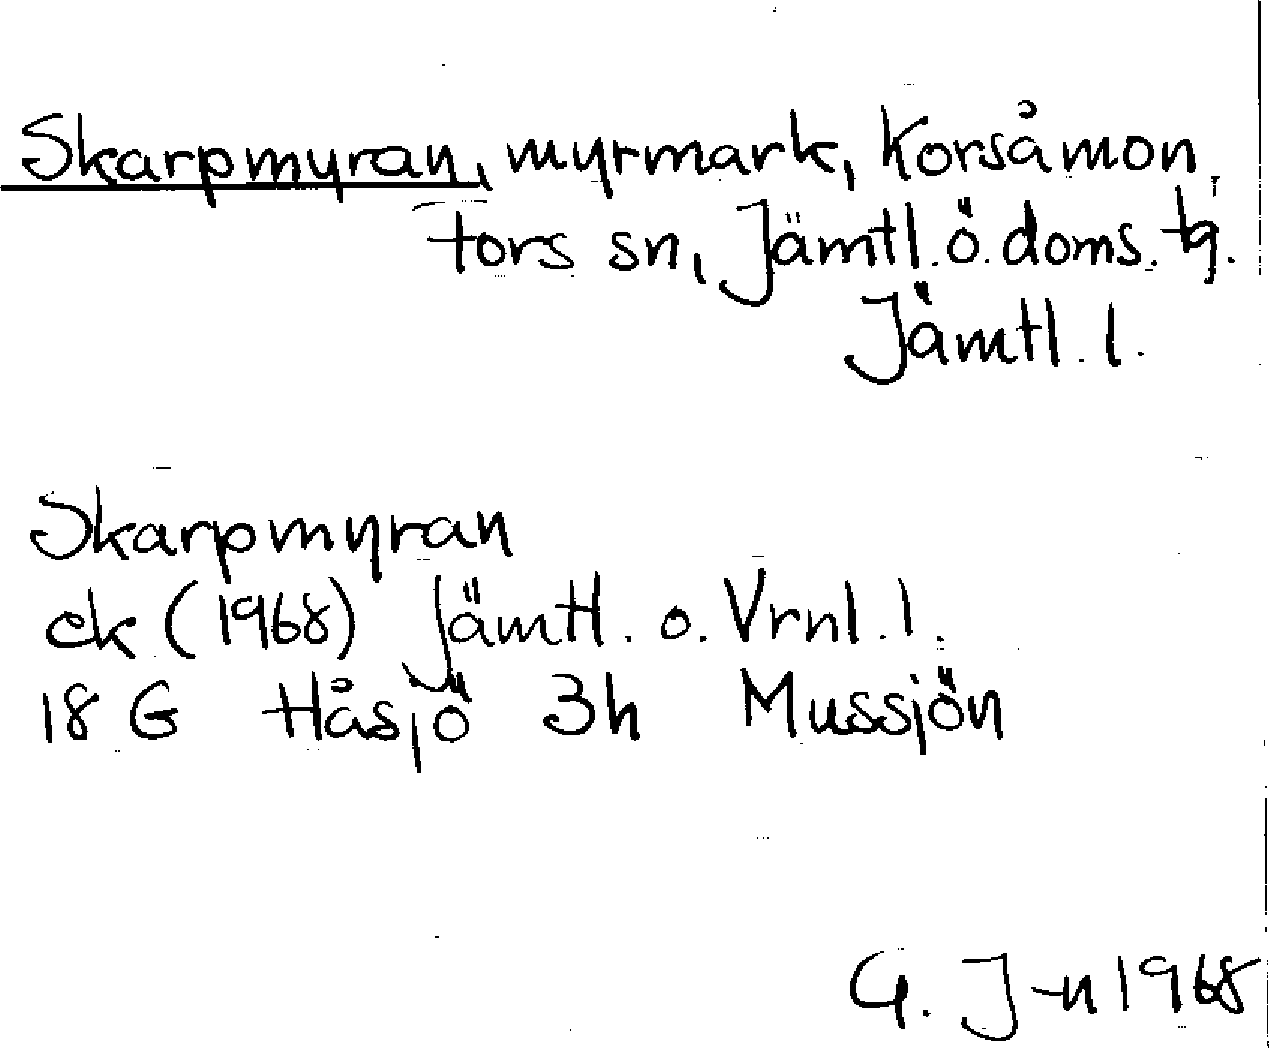 Skarpmyran, myrmark, Korsåmon,
Fors sn, Jämtl. ö. doms. tg.
Jämtl. l.
Skarpmyran
ek (1968) Jämtl. o. Vrnl. l.
18 G Håsjö 3h Mussjön
G. J-n 1968